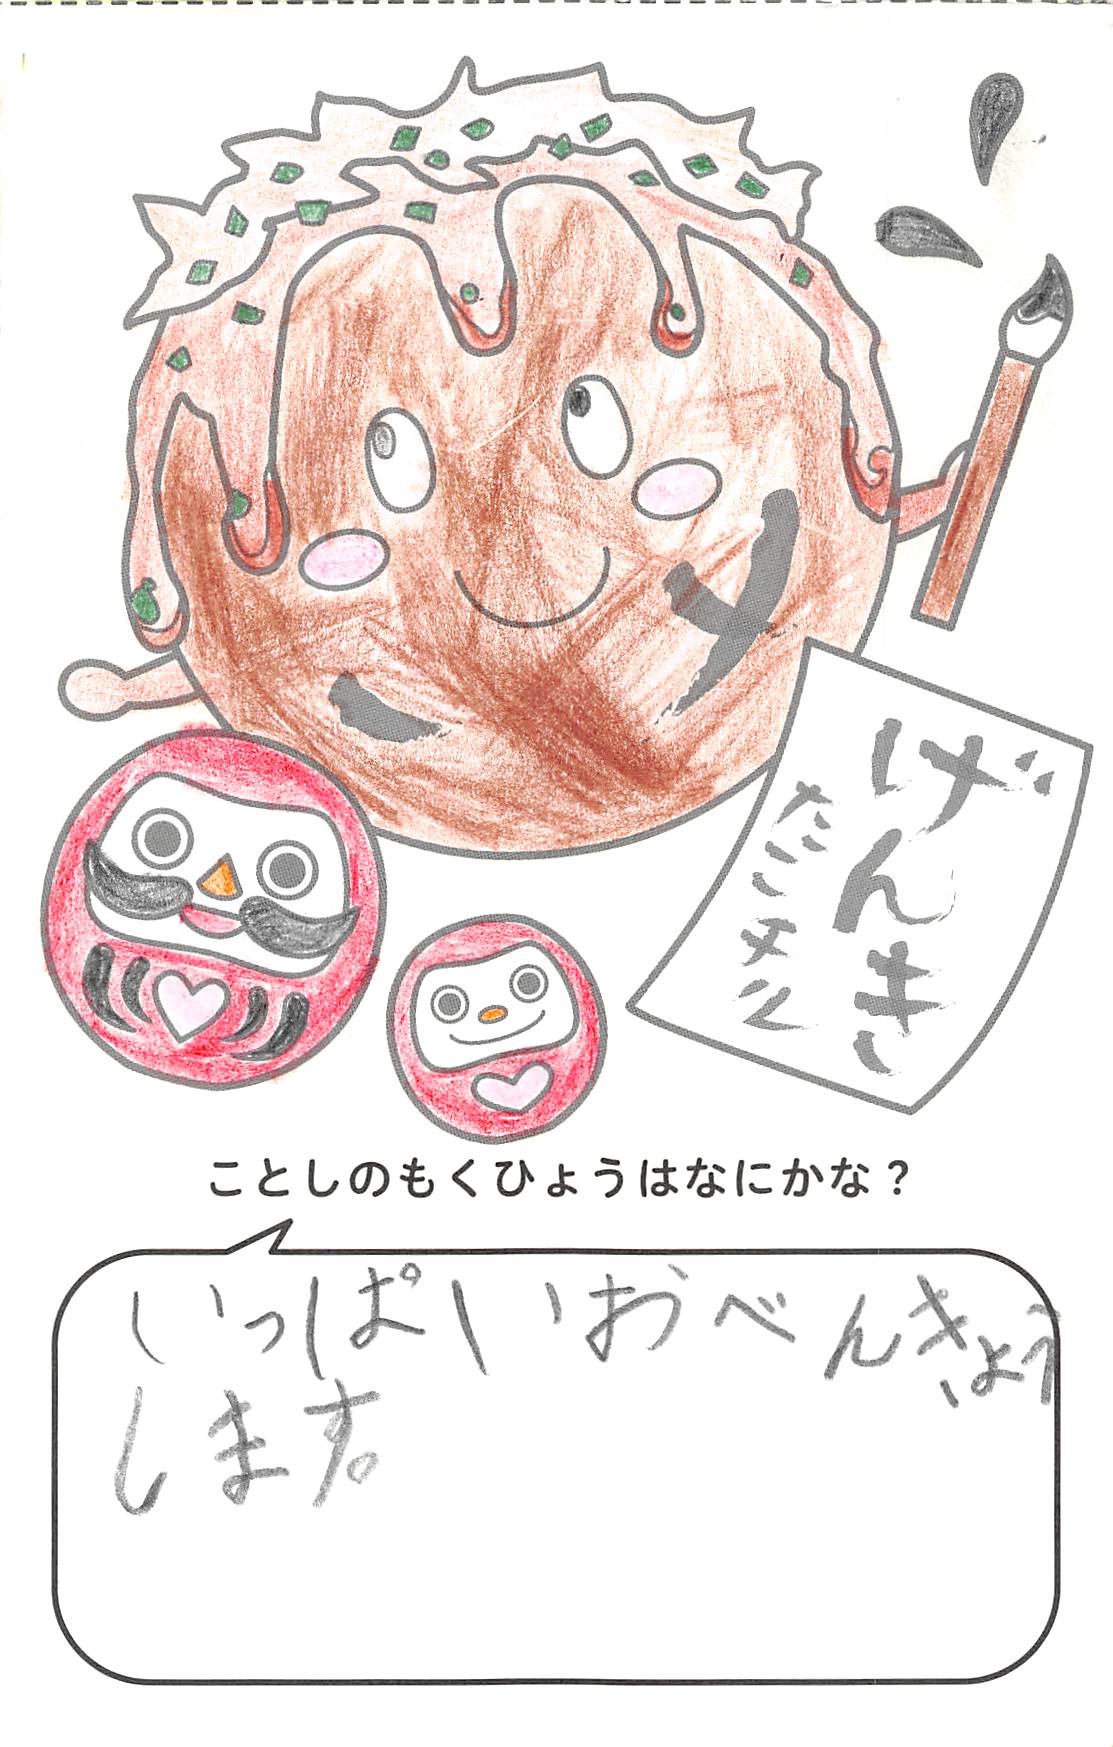 げんき
たこヌリ
ことしのもくひょうはなにかな？
いっぱいおべんきょう
します。